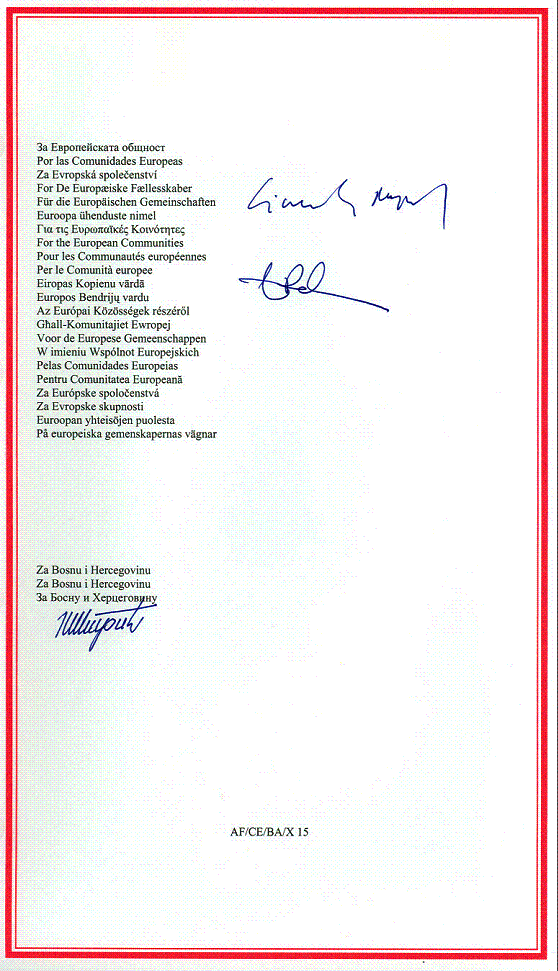 За Европейската общност
Por las Comunidades Europeas
Za Evropská společenství
For De Europæiske Fællesskaber
Für die Europäischen Gemeinschaften
Euroopa ühenduste nimel
Για τις Ευρωπαϊκές Κοινότητες
For the European Communities
Pour les Communautés européennes
Per le Comunità europee
Eiropas Kopienu vārdā
Europos Bendrijų vardu
Az Európai Közösségek részéről
Għall-Komunitajiet Ewropej
Voor de Europese Gemeenschappen
W imieniu Wspólnot Europejskich
Pelas Comunidades Europeias
Pentru Comunitatea Europeană
Za Európske spoločenstvá
Za Evropske skupnosti
Euroopan yhteisöjen puolesta
På europeiska gemenskapernas vägnar
Za Bosnu i Hercegovinu
Za Bosnu i Hercegovinu
За Босну и Херцеговину
AF/CE/BA/X 15